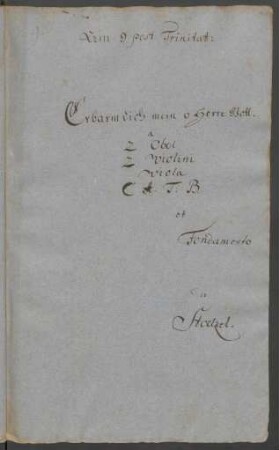 Dom 9 post Trinitat:
Erbarm dich mein o Herre Gott.
a
2 Oboi
2 Violini
Viola
C A T. B
et
Fondamento
Stoelzel.